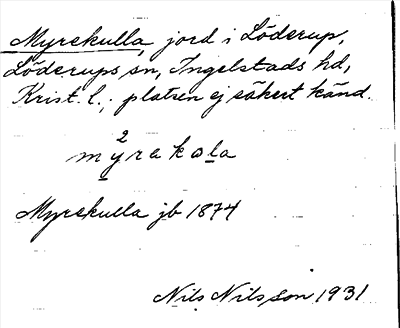 Myrekulla, jord i Löderup,
Löderups sn, Ingelstads hd,
Krist. l.; platsen ej säkert känd.
2
myrakola
Myrekulla jb 1874
Nils Nilsson 1931